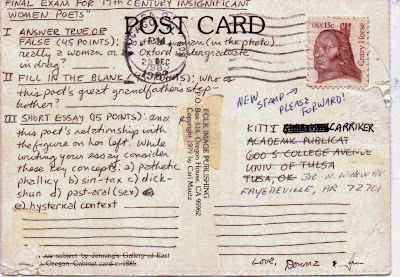 FINAL EXAM FOR 19TH CENTURY INSIGNIFICANT
WOMEN POETS"
POST CARD
I ANSWER TRUE OR
FALSE (45 POINTS):
really a woman or
in drag?
woman (in the photo)
Oxford undergraduate
II FILL IN THE BLANK (45 POINTS): Who is
this poet's great grandfather's step-
mother?
III SHORT ESSAY (15 POINTS):
this poet's relationship with
the figure on her left. While
writing your essay consider
these key concepts. a) pathetic
phallicy b) sin-tax c) dick-
shun d) past-oral (sex)
e) hysterical context
PM
DEC
1983
USA 13c
Crazy Horse
NEW STAMP
PLEASE FORWARD!
FOLK IMAGE PUBLISHING
P.O. Box 510, Oregon House, CA 95962
Copyright 1979 by Carl Mautz
KITTI CARRIKER
ACADEMIC PUBLICAT
600 S COLLEGE AVENUE
UNIV OF TULSA
TULSA, OK
310 N.
FAYETTEVILLE, AR 72701
subject by Jenning's Gallery of East
Oregon. Cabinet card c. 1885.
Love, Donna &